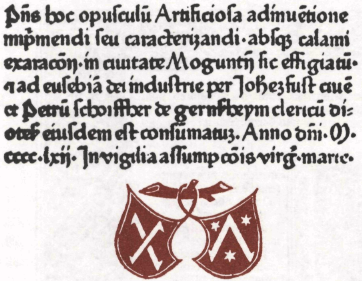 Pñs hoc opusculū Artificiosa adinuētione
imp̄mendi seu caracterizandi · absq̨ calami
exaracōn · in ciuitate Moguntn̄ sic effigiatū ·
⁊ ad eusebiā dei industrie per Johēȝ fust ciuē
et Petrū schoiffher de gernsheym clericū di-
oteſ eiusdem est consūmatuȝ. Anno dn̄i · M ·
cccc · lxij · In vigilia assumpcōis virḡ · marie ·